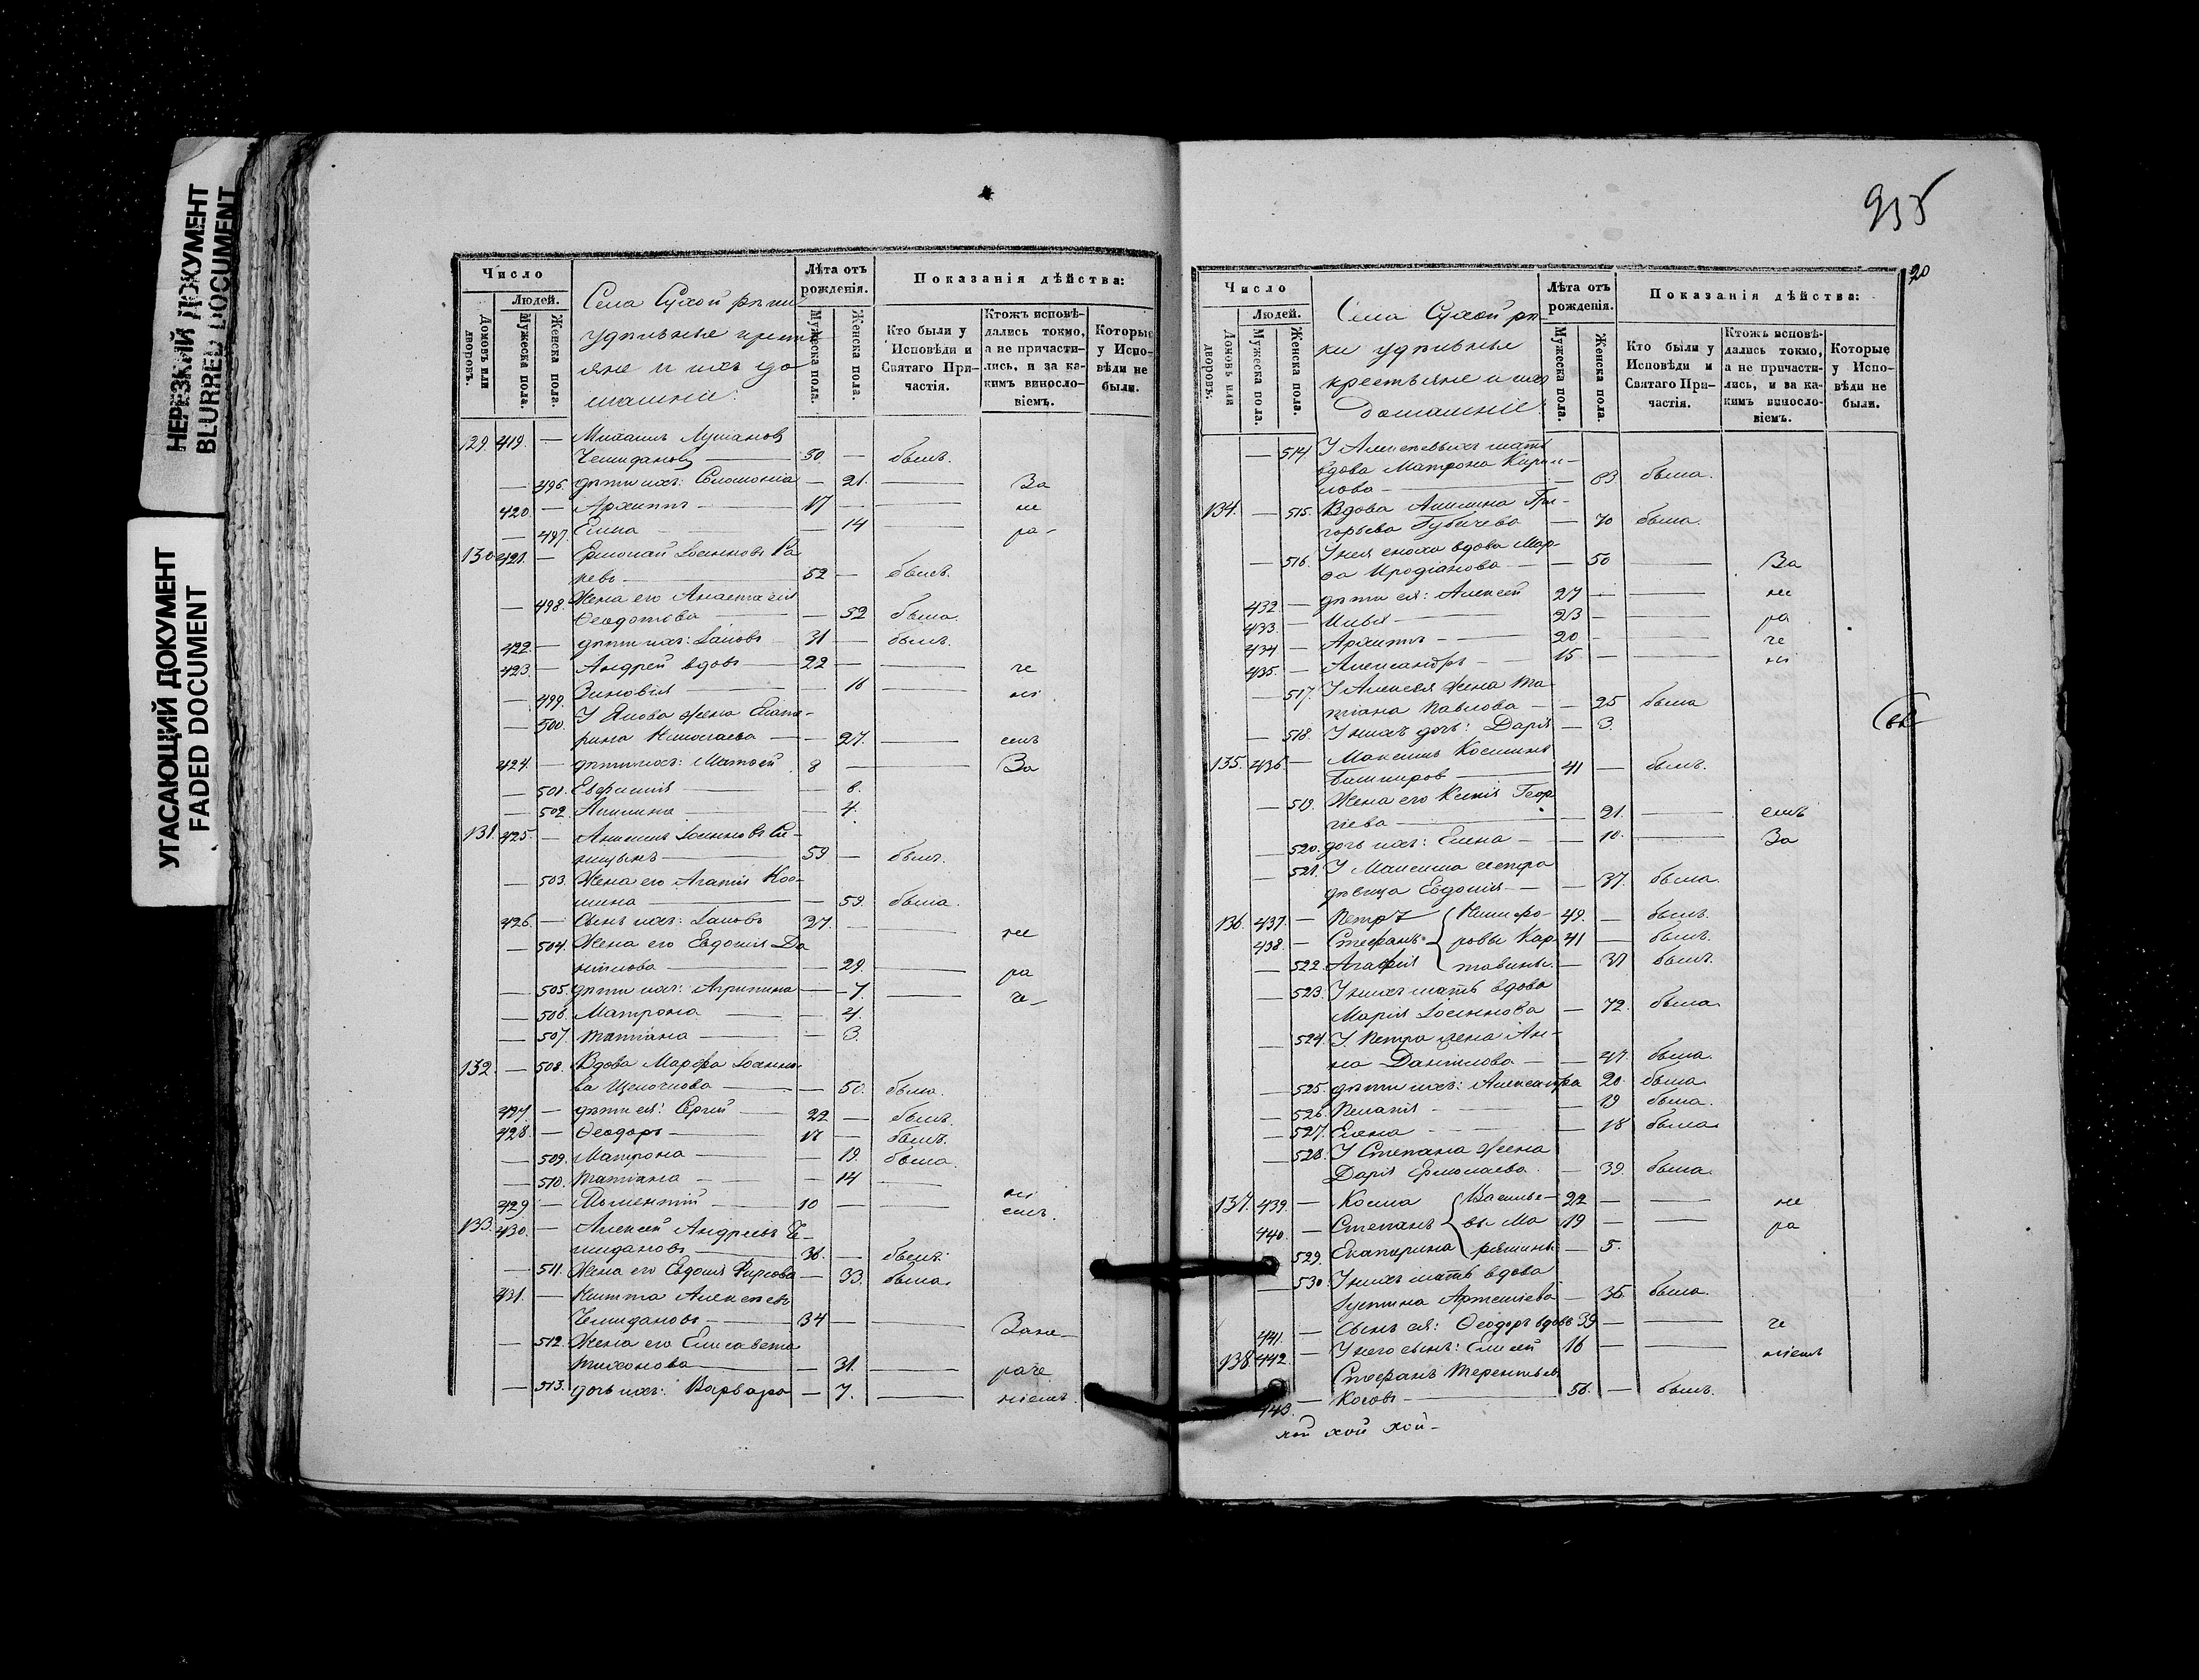 НЕРЕЗКИЙ ДОКУМЕНТ
BLURRED DOCUMENT
УГАСАЮЩИЙ ДОКУМЕНТ
FADED DOCUMENT
Число
Людей.
Домовъ или дворовъ.
Мужеска пола.
Женска пола.
Села Сухой рѣчки
удѣльные кресть
яне и ихъ до
машніе:
Лѣта отъ рожденія.
Мужеска пола.
Женска пола.
Показанія дѣйства:
Кто были у Исповѣди и Святаго Причастія.
Ктожъ исповѣдались токмо, а не причастились, и за какимъ винословіемъ.
Которые у Исповѣди не были.
129. 419. — Михаилъ
Чемидановъ — 50. — былъ.
— 496. дѣти ихъ: Соломонія — 21. — За
420. — Архиппъ — 17 — не
— 497. Елена — 14 — ра-
130. 421. — Ермолай Іоанновъ Ра
невъ — 52 — былъ.
— 498. Жена его Анастасія
Ѳеодотова — 52 была.
422. — дѣти ихъ: Іаковъ 31 — былъ.
423. — Андрей вдовъ — 22 — че
— 499. Зиновія — 16 — ні
— 500. У Якова жена Екате-
рина Николаева — 27. — емъ
424. — дѣти ихъ: Матѳей 8 — За
— 501. Евфимія — 6.
— 502. Акилина — 4.
131. 425. — Іоанновъ Си-
ницынъ — 59 — былъ.
— 503. Жена его Агапія Кос-
мина — 59. была.
426. — Сынъ ихъ: Іаковъ 27. — не
— 504. Жена его Евдокія Да
ніилова — 29. — ра
— 505. дѣти ихъ: Агрипина — 7. — че-
— 506. Матрона — 4.
— 507. Татіана — 3.
132. — 508. Вдова Марѳа Іоанно-
ва Щелочкова — 50. была.
427 — дѣти ея: Сергій — 22 — былъ.
428. — Ѳеодоръ — 17 — былъ.
— 509. Матрона — 19. была.
— 510. Татіана — 14 —
429. — 10 — ні
133. 430. — Алексей Андреевъ Че-
мидановъ — 36. — былъ.
— 511. Жена его Евдокія Фирсова — 33. была.
431. — Никита Алексеевъ
Чемидановъ — 34 — Зане-
— 512. Жена его Елисавета
Тихонова — 31. — раче
— 513. дочь ихъ: Варвара — 7. — ніемъ.
935
20
Число
Людей.
Домовъ или дворовъ.
Мужеска пола.
Женска пола.
Села Сухой рѣч-
ки удѣльные
крестьяне и ихъ
домашніе:
Лѣта отъ рожденія.
Мужеска пола.
Женска пола.
Показанія дѣйства:
Кто были у Исповѣди и Святаго Причастія.
Ктожъ исповѣдались токмо, а не причастились, и за какимъ винословіемъ.
Которые у Исповѣди не были.
— 514. У Алексевыхъ мать
вдова Матрона Кирил-
лова — 63 была.
134. — 515. Вдова Акилина Гри-
горьева Губичева — 70 была.
— 516. У нея сноха вдова Мар-
ѳа Иродіанова — 50 — За
432 — дѣти ея: Алексей 27 — не
433. — Илья — 23 — ра
434 — Архиппъ — 20 — че
435. — Александръ — 15. — ні
— 517. У Алексея жена Та-
тіана Павлова — 25 была
— 518. У нихъ дочь: Дарія — 3.
135. 436. — Максимъ Косминъ
Башкиров — 41 — былъ.
— 519. Жена его Ксенія Геор
гіева — 21. — емъ
— 520. дочь ихъ: Елена — 10. — За
— 521. У Максима сестра
дѣвица Евдокія — 37. была.
136. 437. — Петръ { Никифо- 49. — былъ.
438. — Стефанъ { ровы Кар- 41 — былъ.
— 522. Агафія { тавины. — 31 былъ.
— 523. У нихъ мать вдова
Марія Іоаннова — 72. была.
— 524. У Петра жена Ан-
на Даніилова — 47. была.
— 525. дѣти ихъ: Александра 20. была.
— 526. Пелагія — 19 была.
— 527. Елена — 18 была.
— 528. У Степана жена
Дарія Ермолаева. — 39. была.
137. 439. — Косма { Василье- 22 — не
440. — Степанъ { вы Ма 19 — ра
529. Екатерина { — 5.
— 530. У нихъ мать вдова
Іустина Артеміева — 36. была.
441. — Сынъ ея: Ѳеодоръ вдовъ 39 — че
138. 442. — У него сынъ: Елисей 16 — ніемъ
Стефанъ Терентьевъ
443. — Косовъ — 56. — былъ.
хой хой хой-